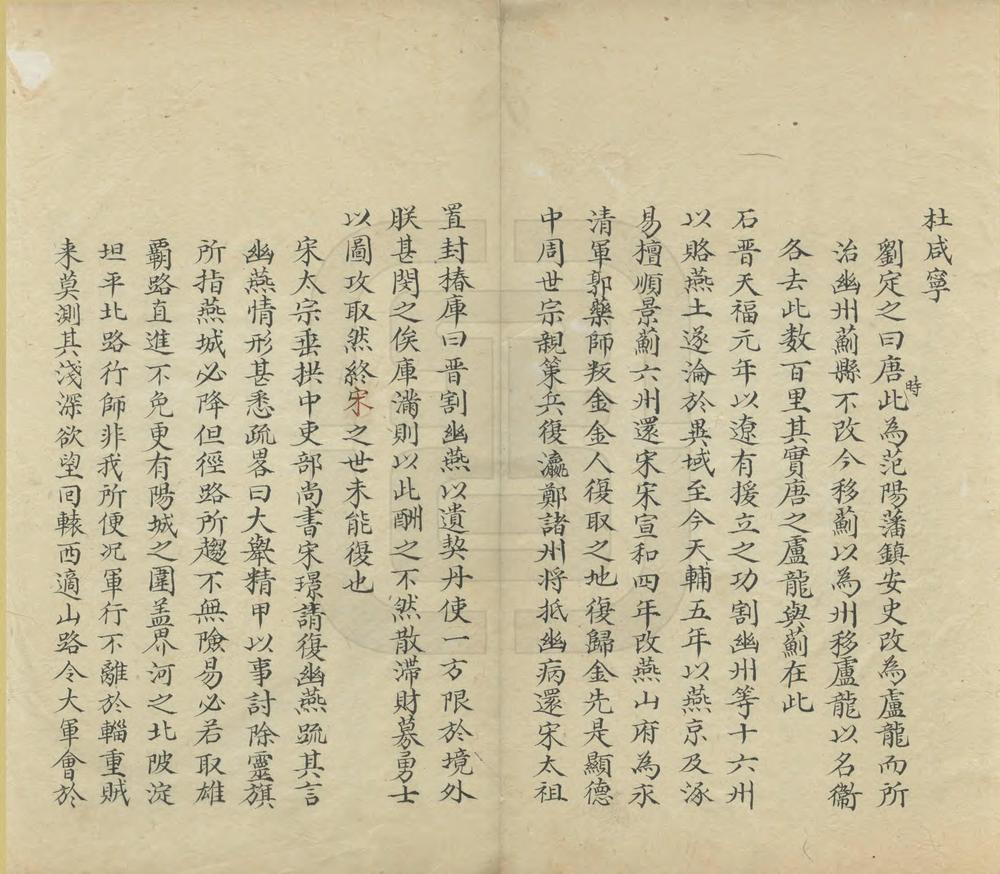 杜咸寧
劉定之曰唐時此為范陽藩鎮安史改為盧龍而所
治幽州薊縣不改今移薊以為州移盧龍以名衞
各去此数百里其實唐之盧龍與薊在此
石晋天福元年以遼有援立之功割幽州等十六州
以賂燕土遂淪於異域至今天輔五年以燕京及涿
易檀順景薊六州還宋宋宣和四年改燕山府為永
清軍郭藥師叛金金人復取之地復歸金先是顯德
中周世宗親䇿兵復瀛鄭諸州将抵幽病還宋太祖
置封椿庫曰晋割幽燕以遺契丹使一方限於境外
朕甚閔之俟庫滿則以此酬之不然散滯財募勇士
以圖攻取然終宋之世未能復也
宋太宗垂拱中吏部尚書宋璟請復幽燕䟽其言
幽燕情形甚悉疏畧曰大舉精甲以事討除靈旗
所指燕城必降但徑路所趨不無險易必若取雄
覇路直進不免更有陽城之圍盖界河之北陂淀
坦平北路行師非我所便况軍行不離於輜重賊
来莫測其淺深欲望囘轅西適山路令大軍會於